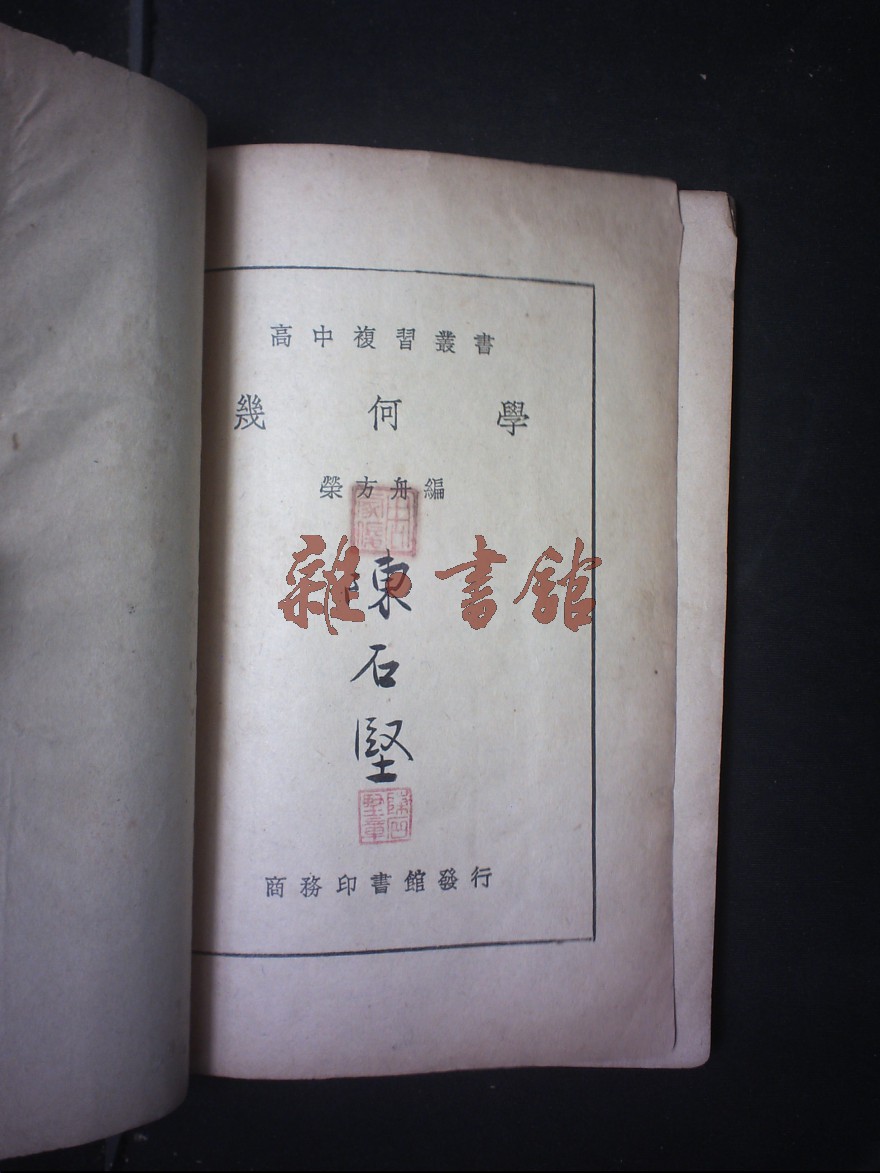 高中複習叢書
幾何學
榮方舟編
雜書館
陳石堅
陳石堅章
商務印書館發行